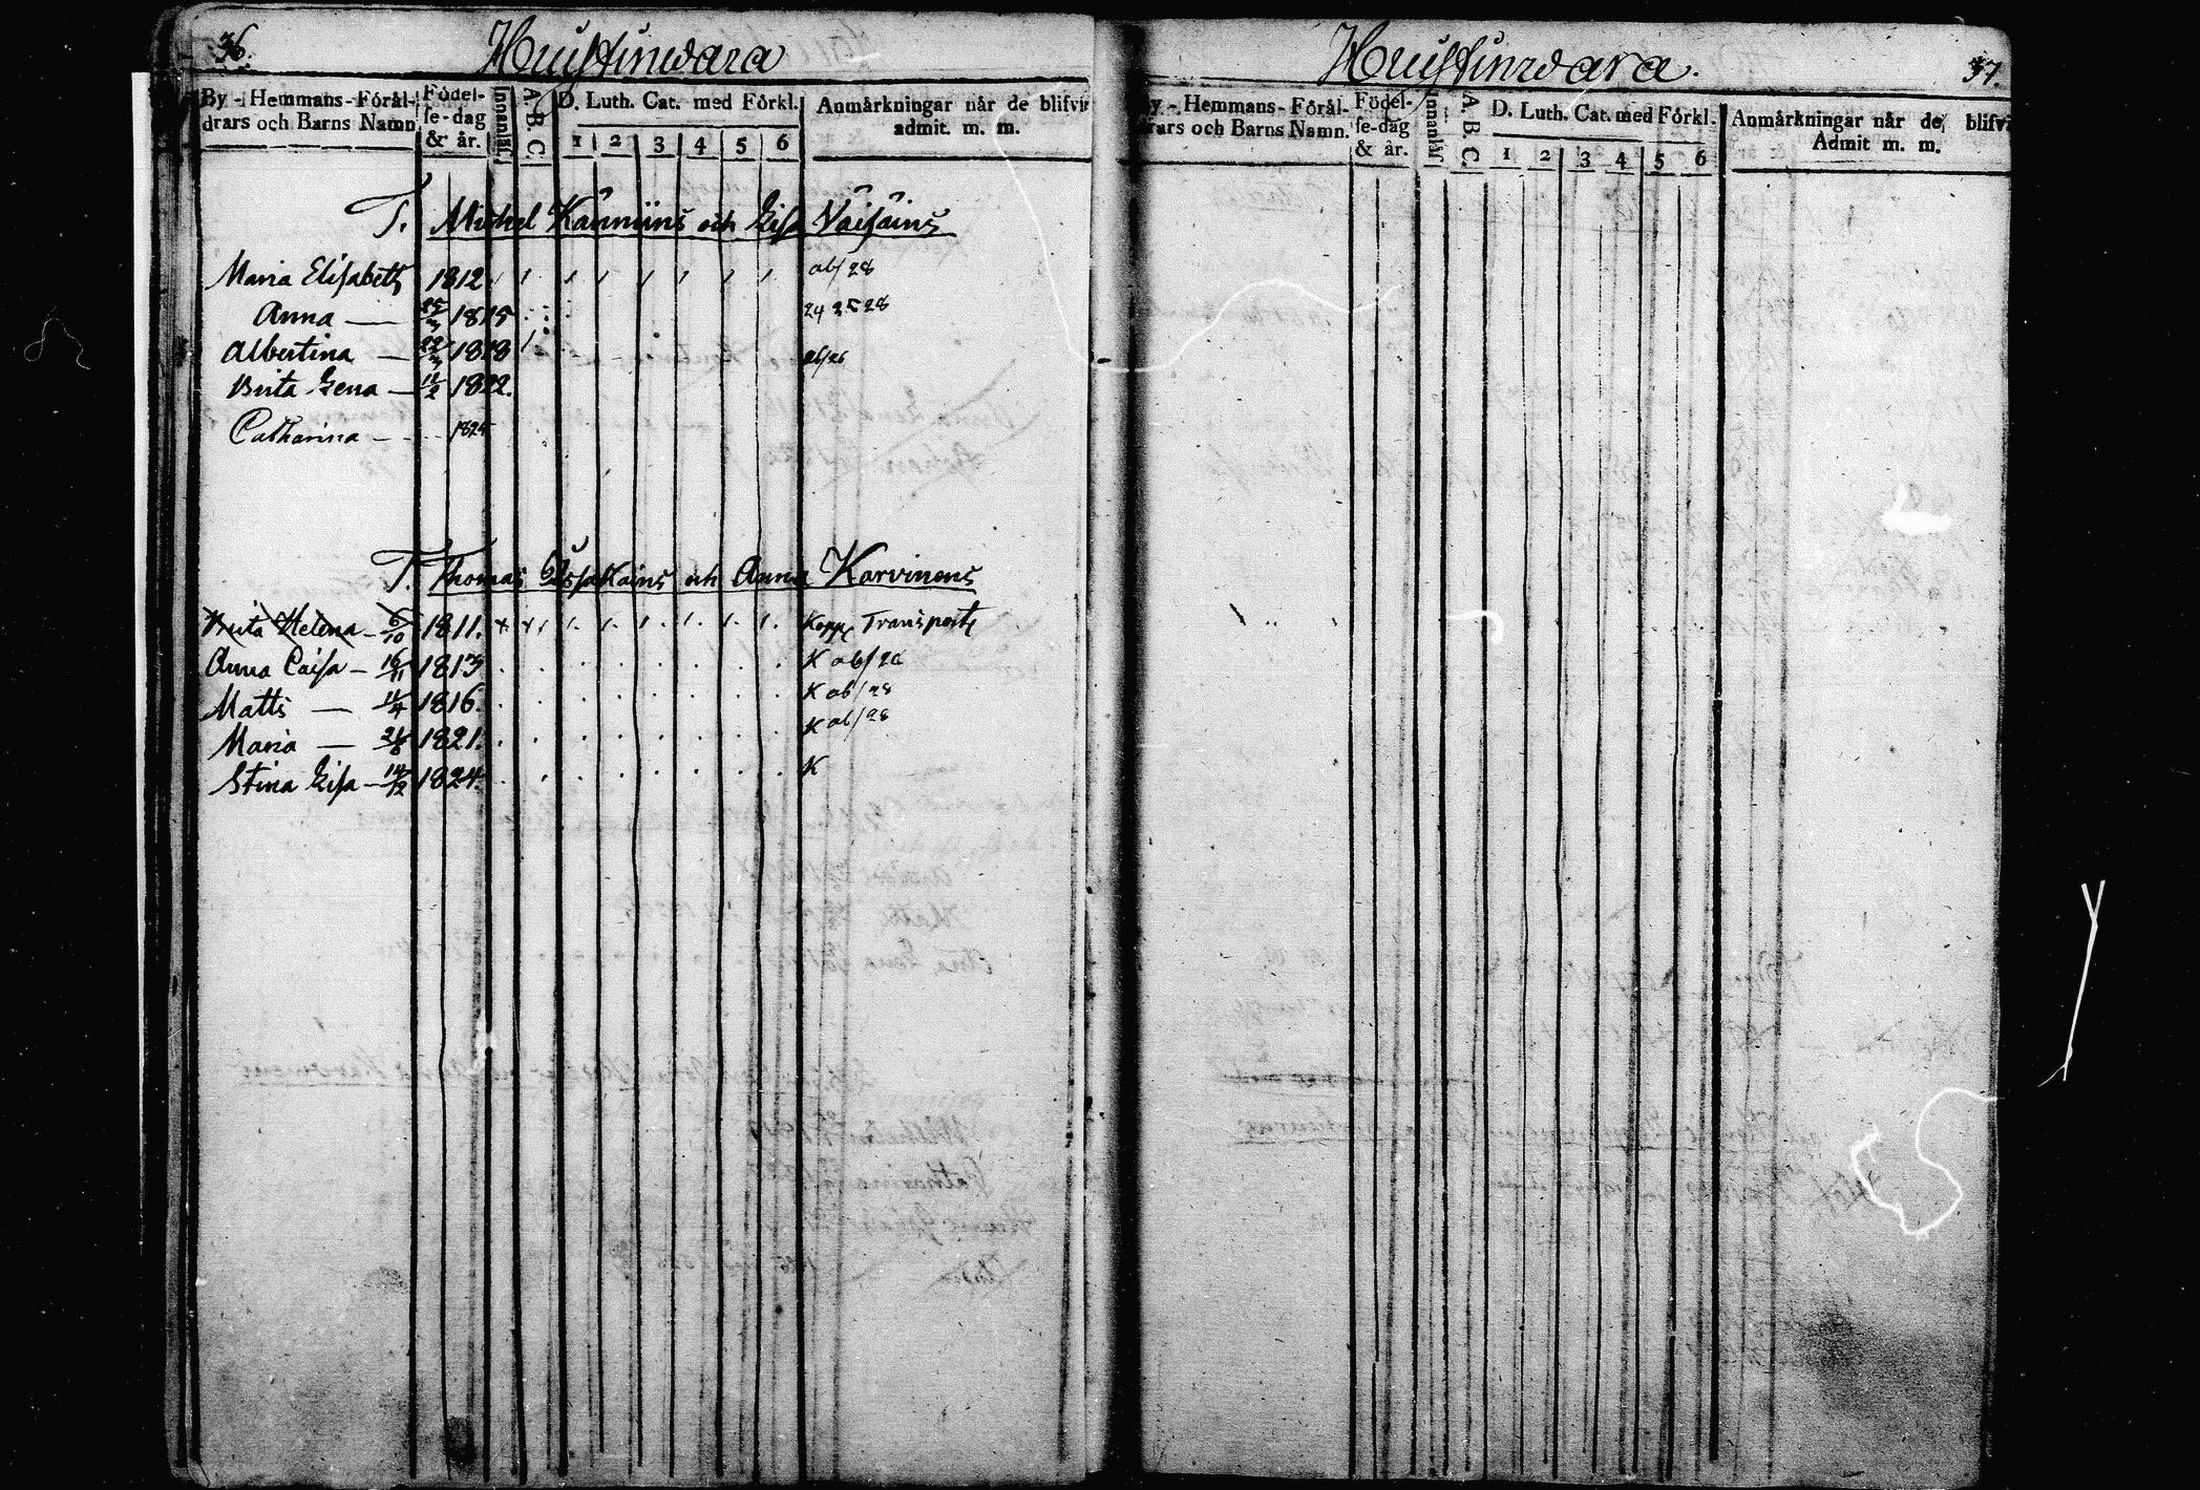 36.
Huusunwara
By - Hemmans - Föräl-
drars och Barns Namn
Födel-
se-dag
& år.
Innanläs.
A. B. C.
D. Luth. Cat. med Förkl.
1 2 3 4 5 6
Anmärkningar når de blifvit
admit. m. m.
T. Michel Kännüns och Lisa Väisäins
Maria Elisabeth 1812 ab/28
Anna — 1815 24 25 28
Albertina — 22/3 1818 ab/26
Brita Lena — 11/2 1822.
Catharina — 1824
T. Thomas Assakains och Anna Karvinens
Brita Helena — 6/10 1811. Kopp. Transport
Anna Caisa — 16/11 1813 K ab/28
Matts — 11/4 1816. K ab/28
Maria — 21/8 1821. K ab/28
Stina Lisa — 14/12 1824. K
37.
By - Hemmans - Föräl-
drars och Barns Namn.
Födel-
se-dag
& år.
Innanläs
A. B. C.
D. Luth. Cat. med Förkl.
1 2 3 4 5 6
Anmärkningar når de blifvi
Admit m. m.